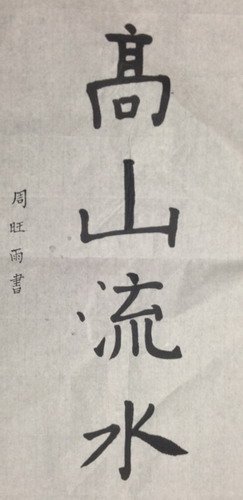 髙山流水
周旺雨書